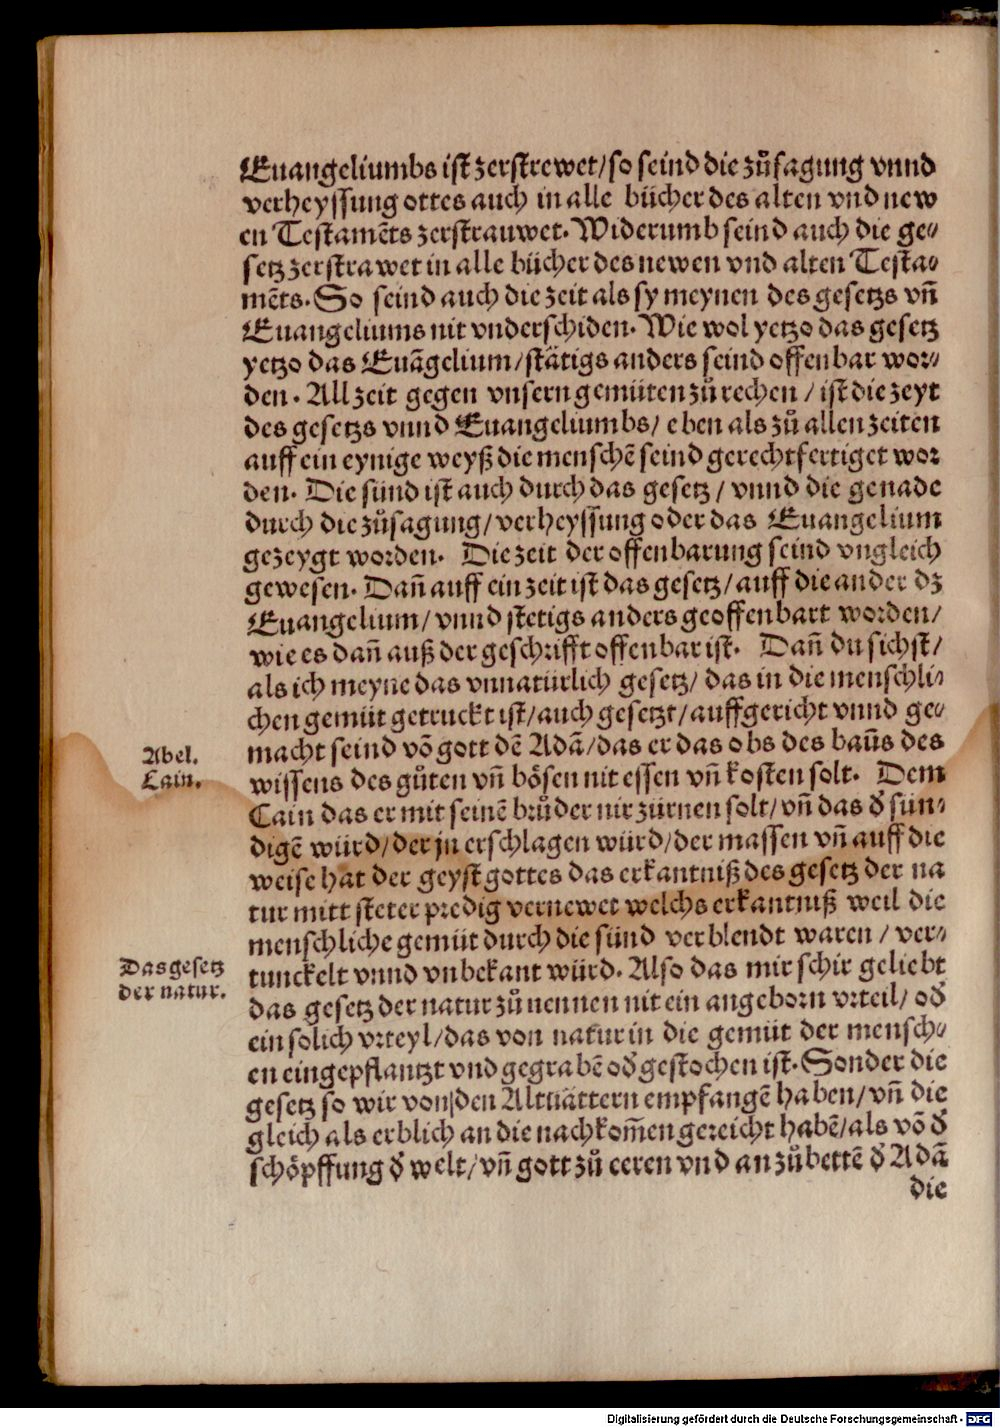 Euangeliumbs ist zerstrewet/ so seind die zůsagung vnnd
verheyssung ottes auch in alle bücher des alten vnd new
en Testamẽts zerstrauwet. Widerumb seind auch die ge⸗
setz zerstrawet in alle bücher des newen vnd alten Testa⸗
mẽts. So seind auch die zeit als sy meynen des gesetzs vñ
Euangeliums nit vnderschiden. Wie wol yetzo das gesetz
yetzo das Euãgelium/ stätigs anders seind offenbar wor⸗
den. All zeit gegen vnsern gemüten zů rechen / ist die zeyt
des gesetzs vnnd Euangeliumbs/ eben als zů allen zeiten
auff ein eynige weyß die menschẽ seind gerechtfertiget wor
den. Die sünd ist auch durch das gesetz / vnnd die genade
durch die zůsagung/ verheyssung oder das Euangelium
gezeygt worden. Die zeit der offenbarung seind vngleich
gewesen. Dañ auff ein zeit ist das gesetz/ auff die ander dz
Euangelium/ vnnd stetigs anders geoffenbart worden/
wie es dañ auß der geschrifft offenbar ist. Dañ du sichst/
als ich meyne das vnnatürlich gesetz/ das in die menschli⸗
chen gemüt getruckt ist/ auch gesetzt/ auffgericht vnnd ge⸗
macht seind võ gott dẽ Adã/ das er das obs des baũs des
Abel.
Cain.
wissens des gůten vñ bösen nit essen vñ kosten solt. Dem
Cain das er mit seinẽ brůder nit zürnen solt/ vñ das d̕ sün⸗
digẽ würd/ der jn erschlagen würd/ der massen vñ auff die
weise hat der geyst gottes das erkantniß des gesetz der na
tur mitt steter predig vernewet welchs erkantniß weil die
menschliche gemüt durch die sünd verblendt waren / ver⸗
Das gesetz
der natur.
tunckelt vnnd vnbekant würd. Also das mir schir geliebt
das gesetz der natur zů nennen nit ein angeborn vrteil/ od̕
ein solich vrteyl/ das von natur in die gemüt der mensch⸗
en eingepflantzt vnd gegrabẽ od̕ gestochen ist. Sonder die
gesetz so wir von den Altuättern empfangẽ haben/ vñ die
gleich als erblich an die nachkom̃en gereicht habẽ/ als võ d̕
schöpffung d̕ welt/ vñ gott zů eeren vnd anzůbettẽ d̕ Adã
die
Digitalisierung gefördert durch die Deutsche Forschungsgemeinschaft - DFG